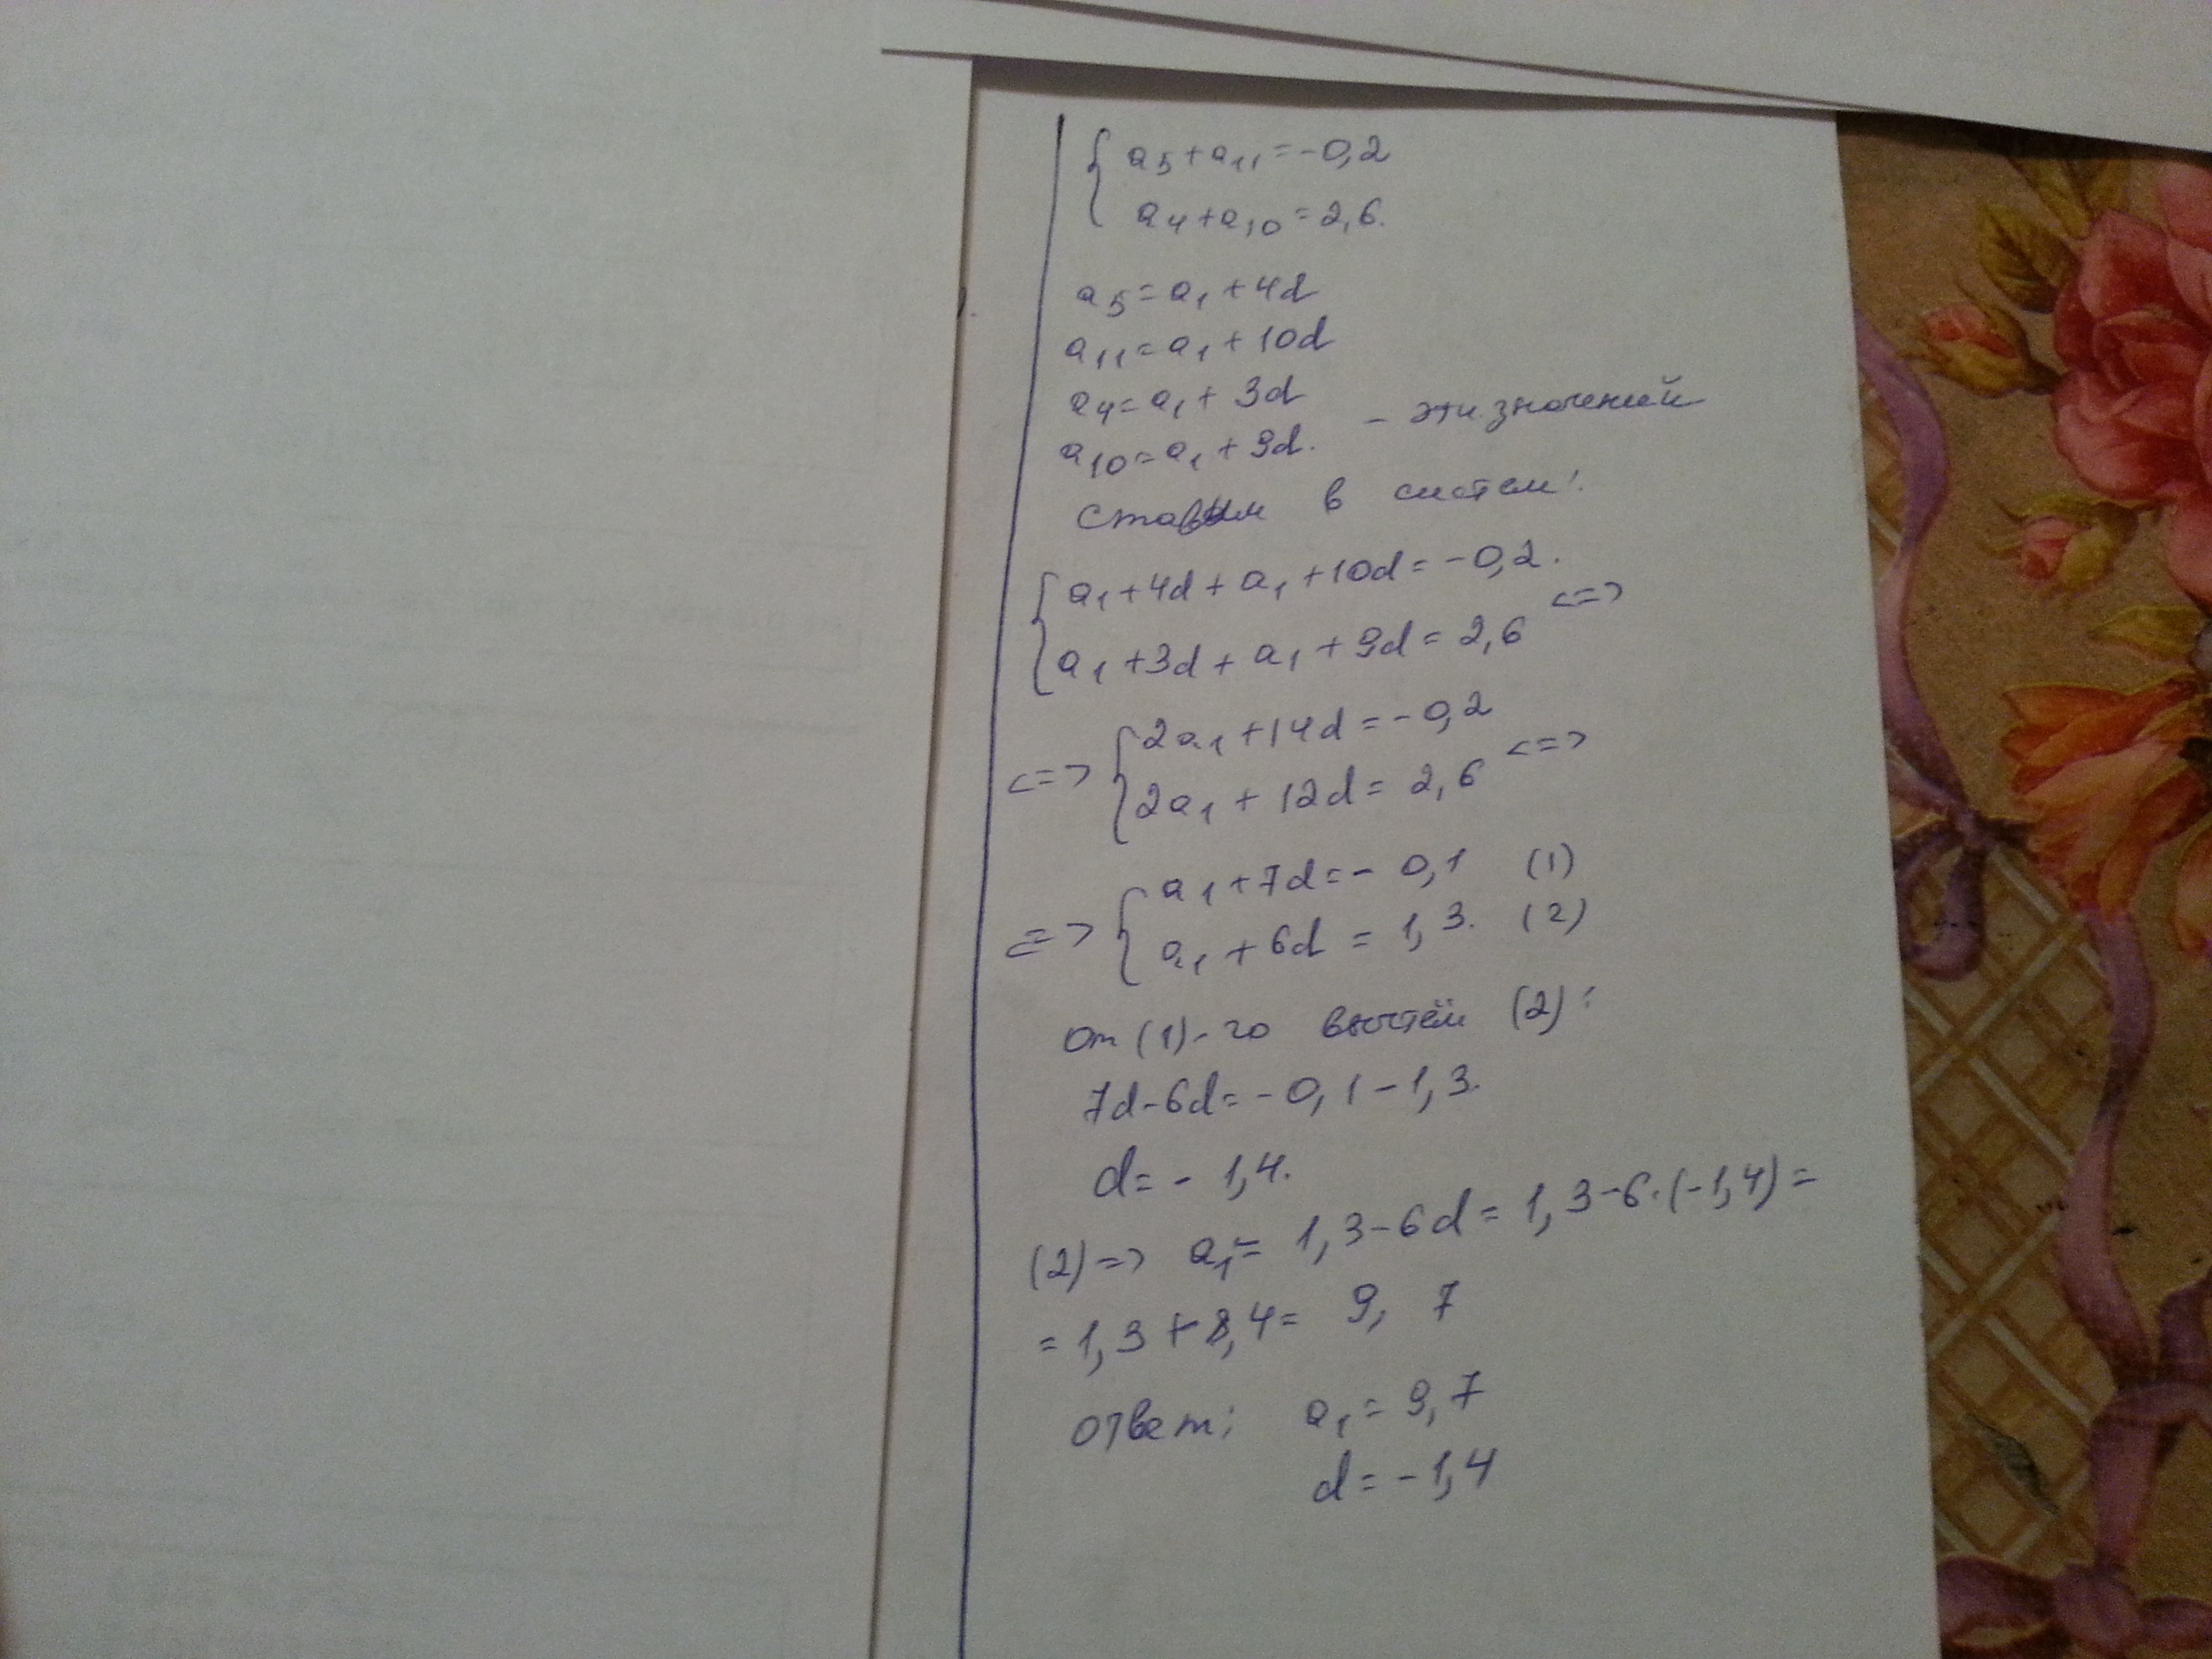 { a₅+a₁₁=-0,2
a₄+a₁₀=2,6.
a₅=a₁+4d
a₁₁=a₁+10d
a₄=a₁+3d
a₁₀=a₁+9d. - эти значений
ставим в систем:
{ a₁+4d+a₁+10d=-0,2.
a₁+3d+a₁+9d=2,6 <=>
<=> { 2a₁+14d=-0,2
2a₁+12d=2,6 <=>
<=> { a₁+7d=-0,1 (1)
a₁+6d=1,3. (2)
от (1)-го вычтём (2):
7d-6d=-0,1-1,3.
d=-1,4.
(2)=> a₁=1,3-6d=1,3-6·(-1,4)=
=1,3+8,4=9,7
ответ: a₁=9,7
d=-1,4